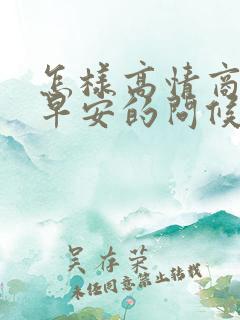 怎样高情商
早安的问候
吴存荣
未经同意禁止转载